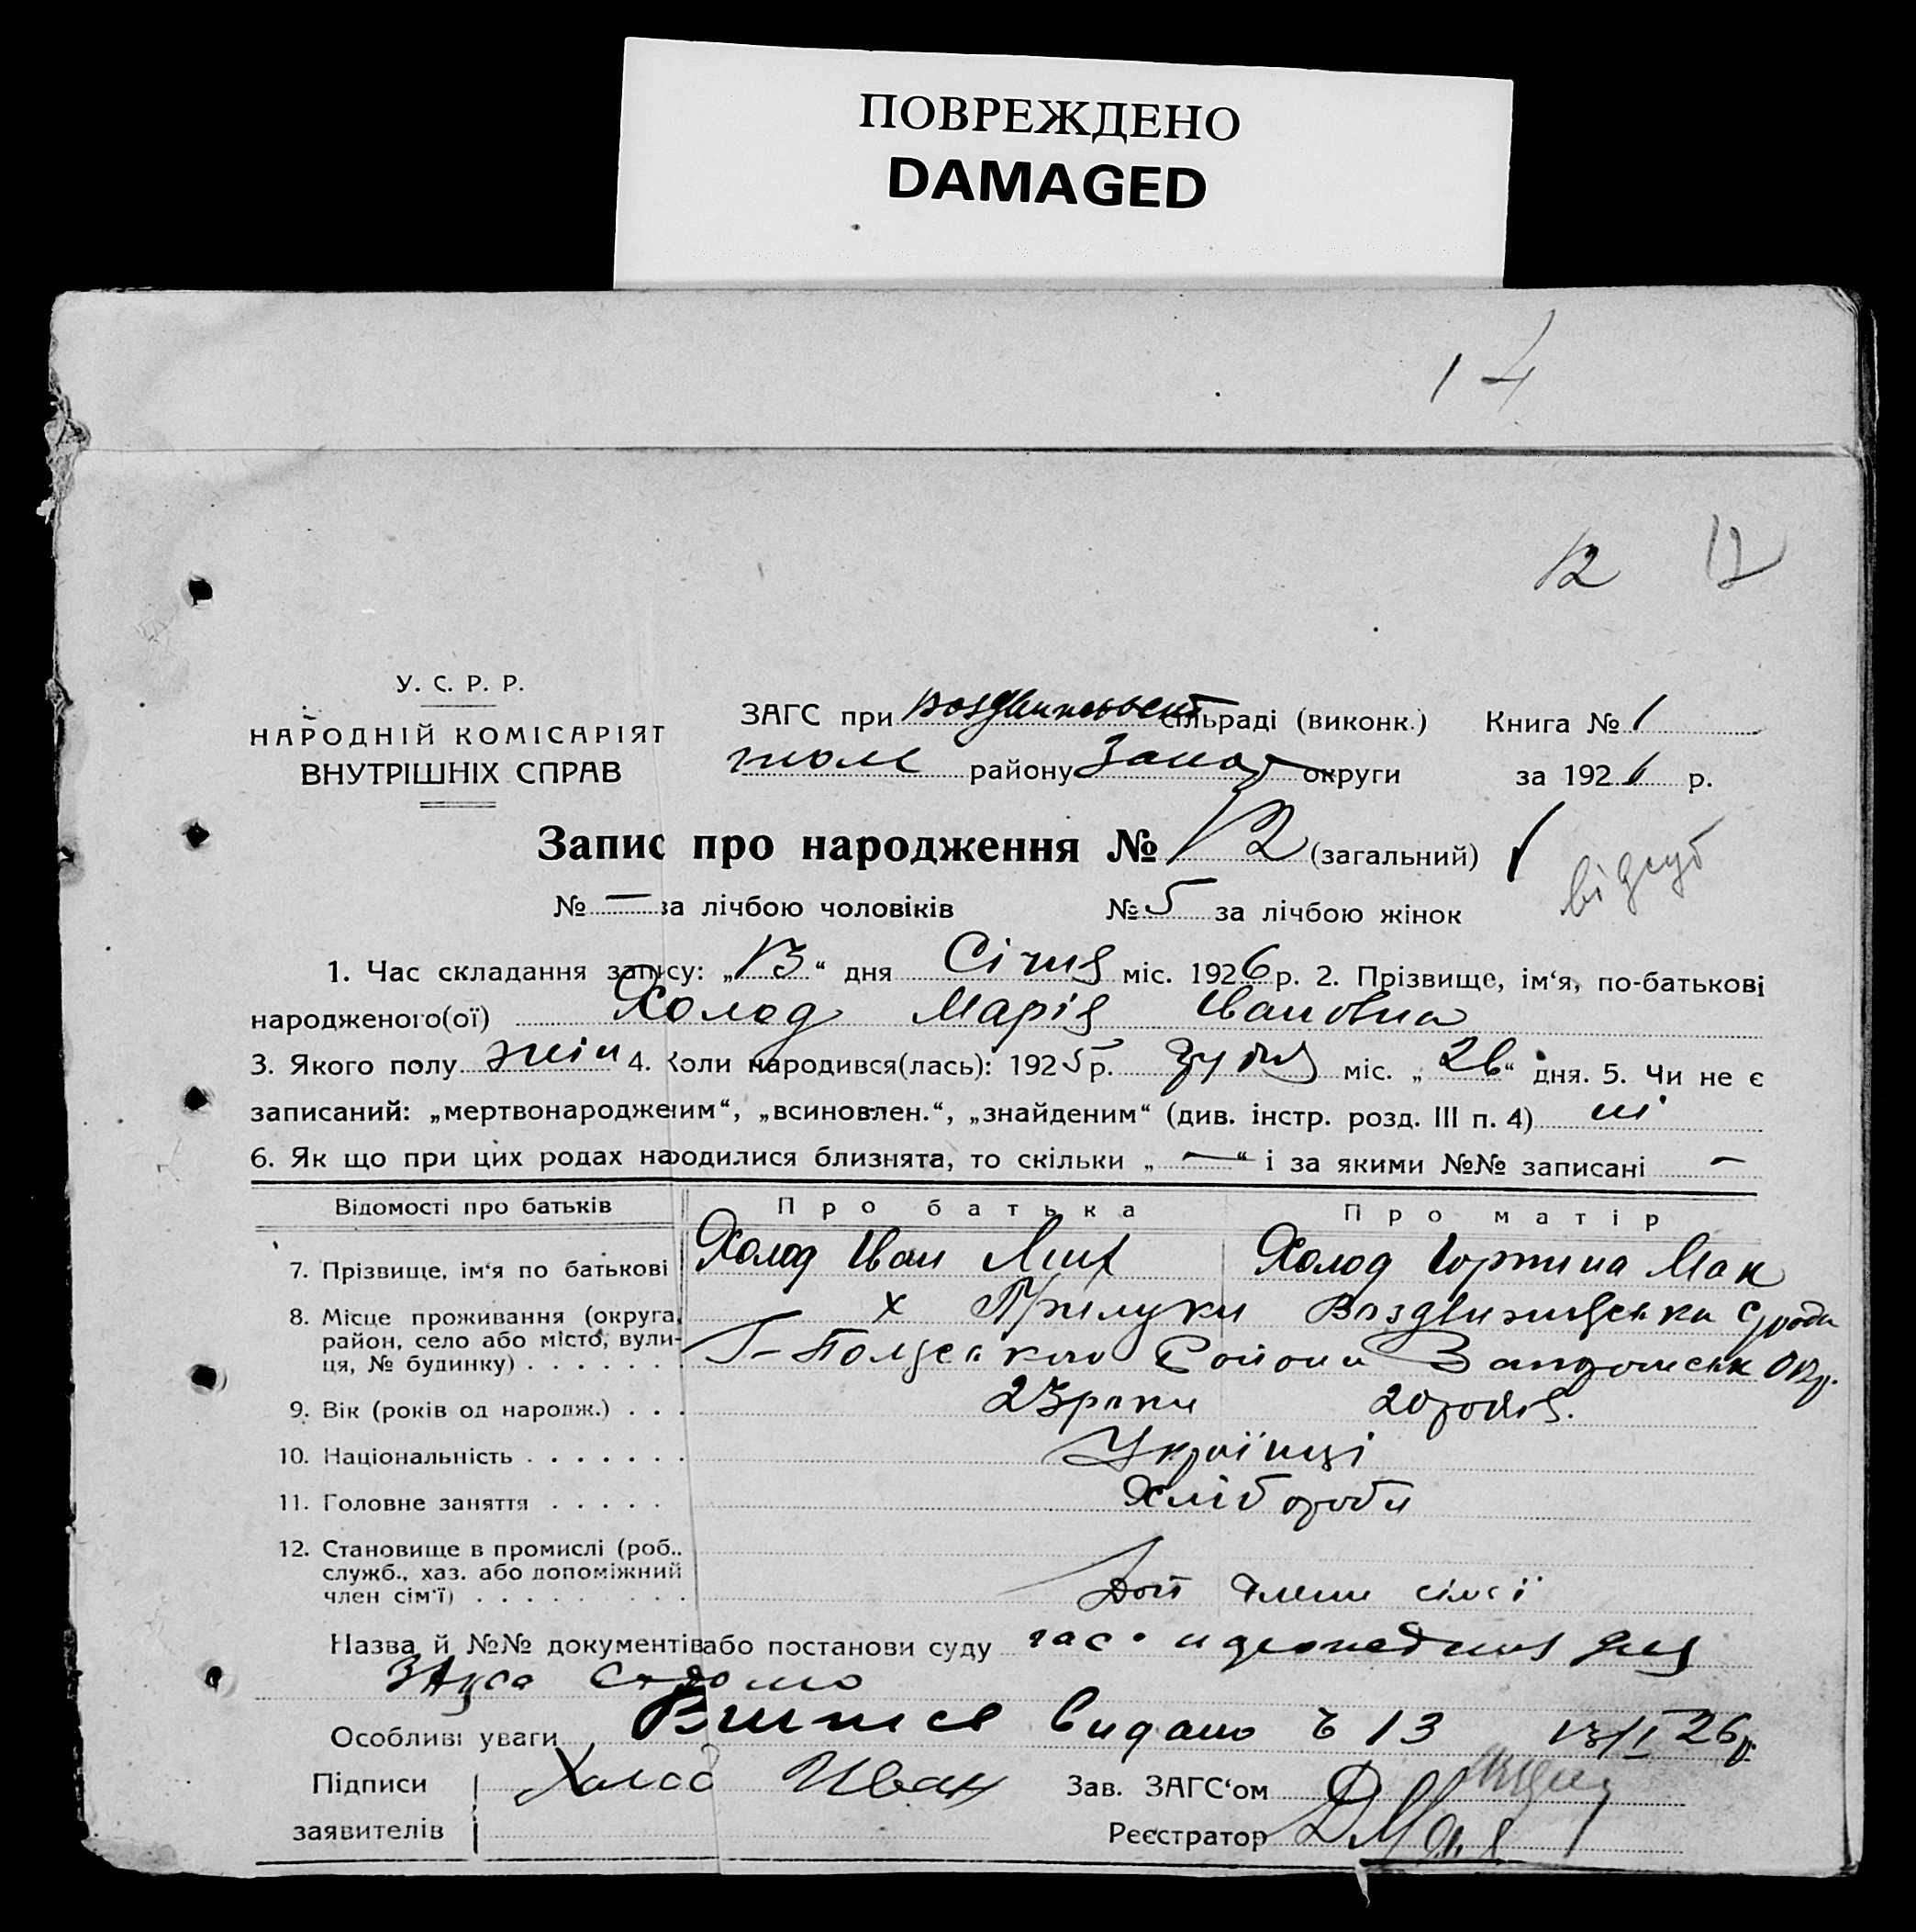 ПОВРЕЖДЕНО
DAMAGED
14
12 12
У. С. Р. Р.
НАРОДНІЙ КОМІСАРІЯТ
ВНУТРІШНІХ СПРАВ
ЗАГС при сільраді (виконк.) Книга № 1
району Запор округи за 1926 р.
Запис про народження № 12 (загальний)
№ — за лічбою чоловіків № 5 за лічбою жінок
1. Час складання запису: „13“ дня Січня міс. 1926 р. 2. Прізвище, ім‘я, по-батькові
народженого(ої) Холод Марія Івановна
3. Якого полу жін 4. Коли народився(лась): 1925 р. Грудня міс. „26“ дня. 5. Чи не є
записаний: „мертвонародженим“, „всиновлен.“, „знайденим“ (див. інстр. розд. III п. 4) ні
6. Як що при цих родах народилися близнята, то скільки „—“ і за якими №№ записані —
Відомості про батьків Про батька Про матір
7. Прізвище, ім‘я по батькові Холод Іван Мих Холод Горпина Мак
8. Місце проживання (округа, х Прилуки Воздвижівська
район, село або місто, вули-
ця, № будинку) Г-Польського Району Запорожськ Окр.
9. Вік (років од народж.) 23 роки 20 років.
10. Національність Українці
11. Головне заняття Хлібороби
12. Становище в промислі (роб.,
служб., хаз. або допоміжний
член сім‘ї) Доп члени сімї
Назва й №№ документів або постанови суду
ЗАгса
Особливі уваги Витяг видано 13 13/I 26р.
Підписи Холод Иван Зав. ЗАГС‘ом
заявителів Реєстратор